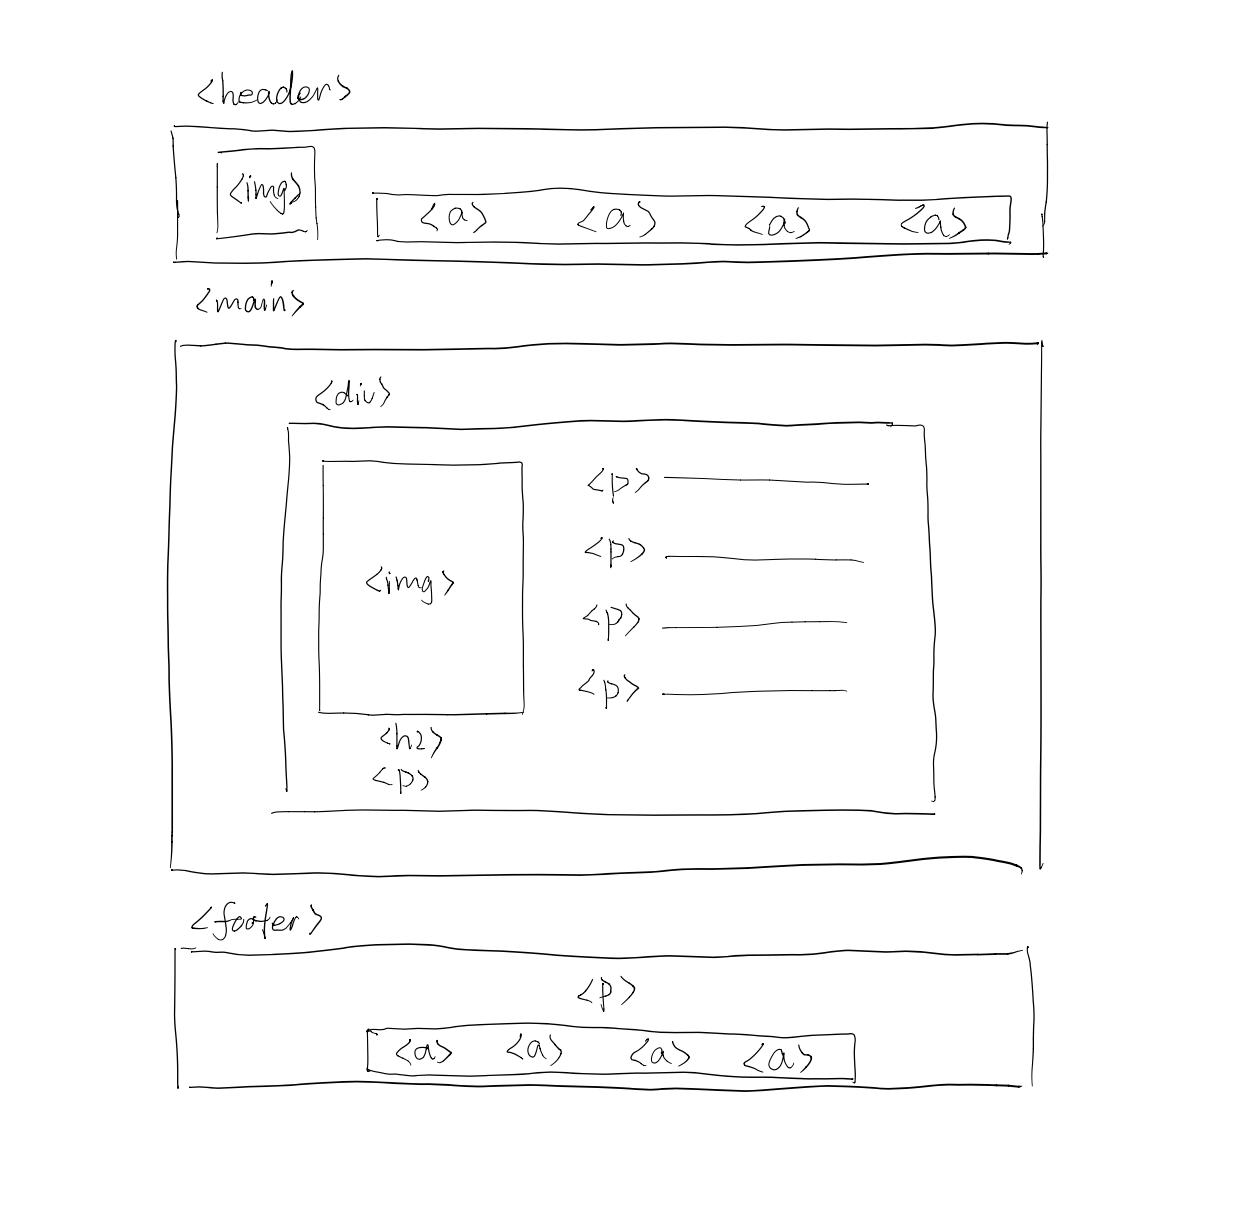 <header>
<img>
<a> <a> <a> <a>
<main>
<div>
<p>
<p>
<img>
<p>
<p>
<h2>
<p>
<footer>
<p>
<a> <a> <a> <a>